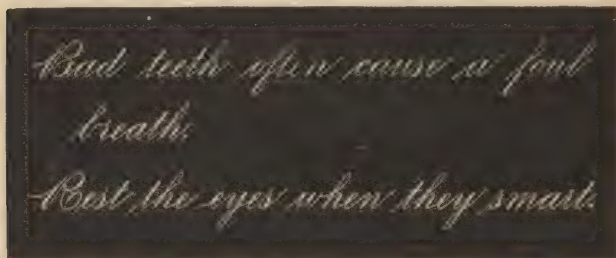 Bad teeth often cause a foul
breath.
Rest the eyes when they smart.